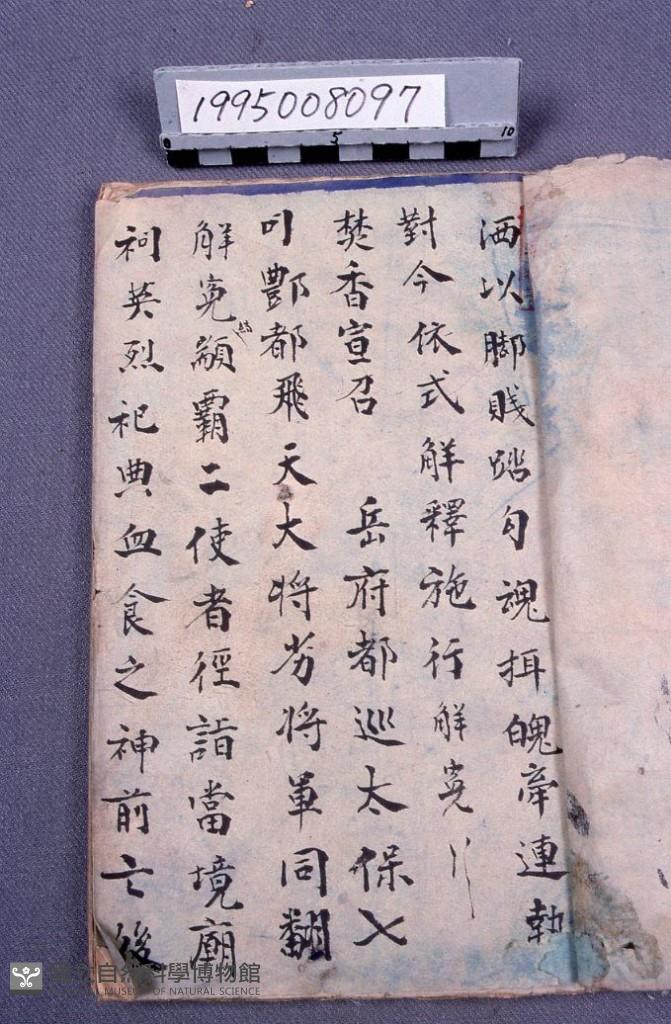 1995008097
0 5 10
洒以脚賤踏勾魂揖魄牽連執
對今依式解釋施行解寃〃
焚香宣召 岳府都巡太保乂
叩酆都飛天大将劣将軍同翻
解寃結顙覇二使者徑詣當境廟
祠英烈祀典血食之神前亡後
自然科學博物館
MUSEUM OF NATURAL SCIENCE